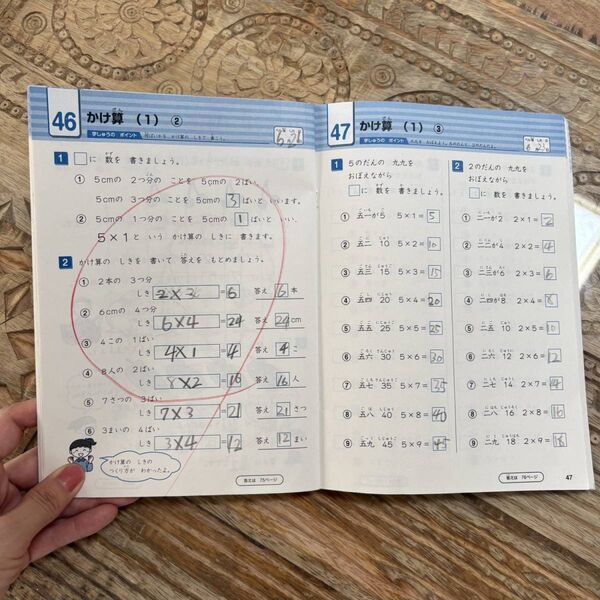 46 かけ算 (1) ②
学しゅうの ポイント
1 □に 数を 書きましょう。
① 5cmの 2つ分の ことを 5cmの 2ばい、
5cmの 3つ分の ことを 5cmの 3ばいと いいます。
② 5cmの 1つ分の ことも 5cmの 1ばいと いい、
5×1と いう かけ算の しきに 書きます。
2 かけ算の しきを 書いて 答えを もとめましょう。
① 2本の 3つ分
しき 2×3=6 答え 6本
② 6cmの 4つ分
しき 6×4=24 答え 24cm
③ 4この 1ばい
しき 4×1=4 答え 4こ
④ 8人の 2ばい
しき 8×2=16 答え 16人
⑤ 7さつの 3ばい
しき 7×3=21 答え 21さつ
⑥ 3まいの 4ばい
しき 3×4=12 答え 12まい
かけ算の しきの
つくり方が わかったよ。
答えは 75ページ
47 かけ算 (1) ③
学しゅうの ポイント
1 5のだんの 九九を
おぼえながら
□に 数を 書きましょう。
① 五一が5 5×1=5
② 五二 10 5×2=10
③ 五三 15 5×3=15
④ 五四 20 5×4=20
⑤ 五五 25 5×5=25
⑥ 五六 30 5×6=30
⑦ 五七 35 5×7=35
⑧ 五八 40 5×8=40
⑨ 五九 45 5×9=45
2 2のだんの 九九を
おぼえながら
□に 数を 書きましょう。
① 二一が2 2×1=2
② 二二が4 2×2=4
③ 二三が6 2×3=6
④ 二四が8 2×4=8
⑤ 二五 10 2×5=10
⑥ 二六 12 2×6=12
⑦ 二七 14 2×7=14
⑧ 二八 16 2×8=16
⑨ 二九 18 2×9=18
答えは 76ページ
47